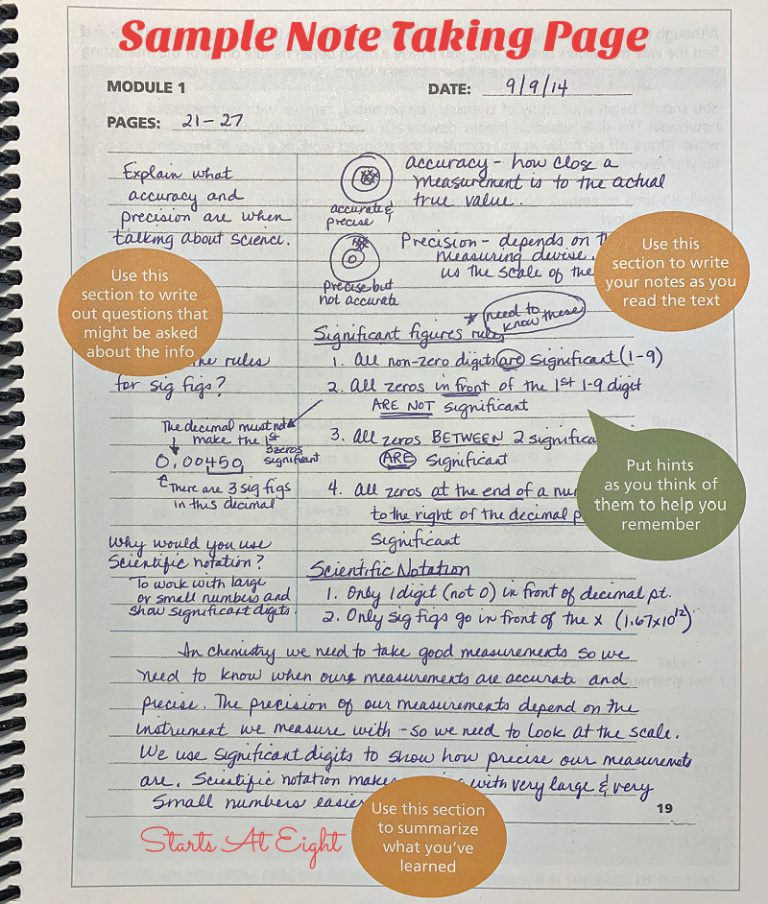 Sample Note Taking Page
MODULE 1
DATE: 9/9/14
PAGES: 21-27
Explain what
accuracy and
precision are when
talking about science.
Use this
section to write
out questions that
might be asked
about the info
the rules
for sig figs?
The decimal must not
make the 1st
3 zeros
significant
0.00450
There are 3 sig figs
in this decimal
Why would you use
Scientific notation?
To work with large
or small numbers and
show significant digits.
accurate &
precise
accuracy - how close a
measurement is to the actual
true value.
Precise but
not accurate
Precision - depends on
measuring devise.
us the scale of the
Use this
section to write
your notes as you
read the text
* need to
know these
Significant figures rules
1. All non-zero digits are significant (1-9)
2. All zeros in front of the 1st 1-9 digit
ARE NOT significant
3. All zeros BETWEEN 2
ARE significant
Put hints
as you think of
them to help you
remember
4. All zeros at the end of a
to the right of the decimal
Significant
Scientific Notation
1. Only 1 digit (not 0) in front of decimal pt.
2. Only sig figs go in front of the x (1.67x10¹²)
In chemistry we need to take good measurements so we
need to know when our measurements are accurate and
precise. The precision of our measurements depend on the
instrument we measure with - so we need to look at the scale.
We use significant digits to show how precise our measuremnts
are. Scientific notation makes with very large & very
small numbers easier
19
Use this section
to summarize
what you've
learned
Starts At Eight